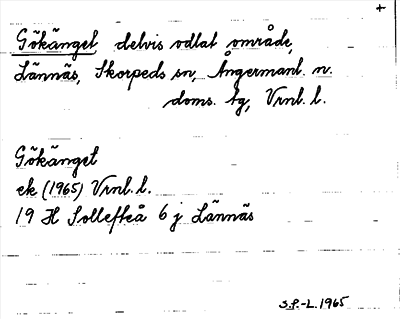 +
Gökänget delvis odlat område,
Lännäs, Skorpeds sn, Ångermanl. n.
doms. tg, Vrnl. l.
Gökänget
ek (1965) Vrnl. l.
19 H Sollefteå 6 j Lännäs
S.P.-L. 1965